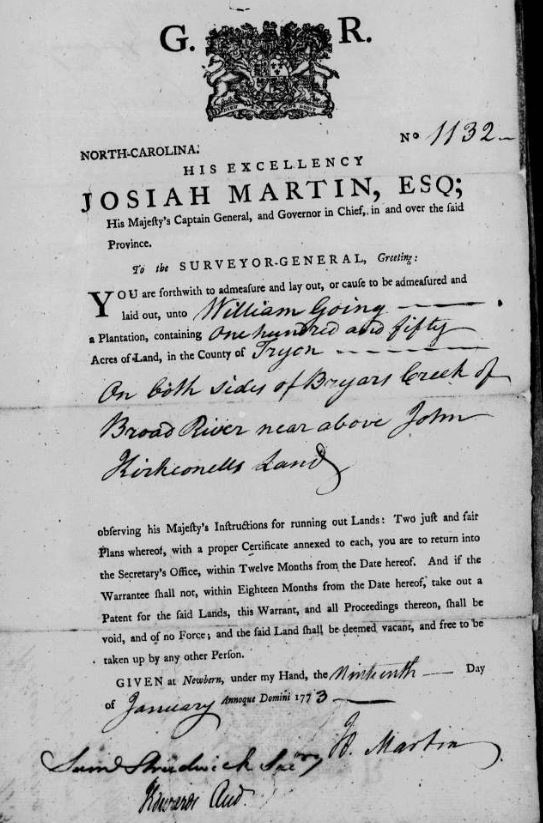 G. R.
No 1132
NORTH-CAROLINA.
HIS EXCELLENCY
JOSIAH MARTIN, ESQ;
His Majesty's Captain General, and Governor in Chief, in and over the said
Province.
To the SURVEYOR-GENERAL, Greeting:
YOU are forthwith to admeasure and lay out, or cause to be admeasured and
laid out, unto William Going
a Plantation, containing One hundred and fifty
Acres of Land, in the County of Tryon
On both sides of Bryars Creek of
Broad River near above John
Kirkconells Land
observing his Majesty's Instructions for running out Lands: Two just and fair
Plans whereof, with a proper Certificate annexed to each, you are to return into
the Secretary's Office, within Twelve Months from the Date hereof. And if the
Warrantee shall not, within Eighteen Months from the Date hereof, take out a
Patent for the said Lands, this Warrant, and all Proceedings thereon, shall be
void, and of no Force; and the said Land shall be deemed vacant, and free to be
taken up by any other Person.
GIVEN at Newbern, under my Hand, the Ninteenth Day
of January Annoque Domini 1773
Jo. Martin
Saml Strudwick Secry
Edwards Aud.